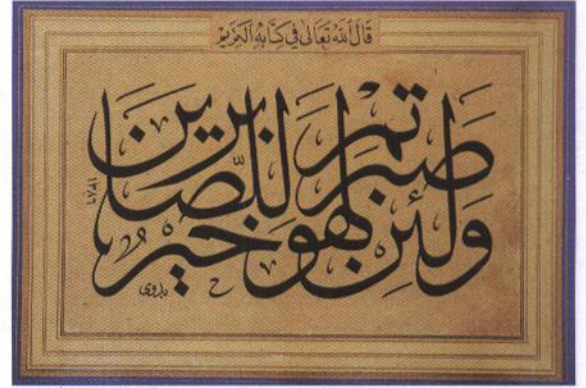 قَالَ ٱللَّهُ تَعَالَىٰ فِي كِتَابِهِ ٱلْكَرِيمِ
وَلَئِن صَبَرْتُمْ لَهُوَ خَيْرٌ لِّلصَّابِرِينَ
١٣٨٦
بدوى